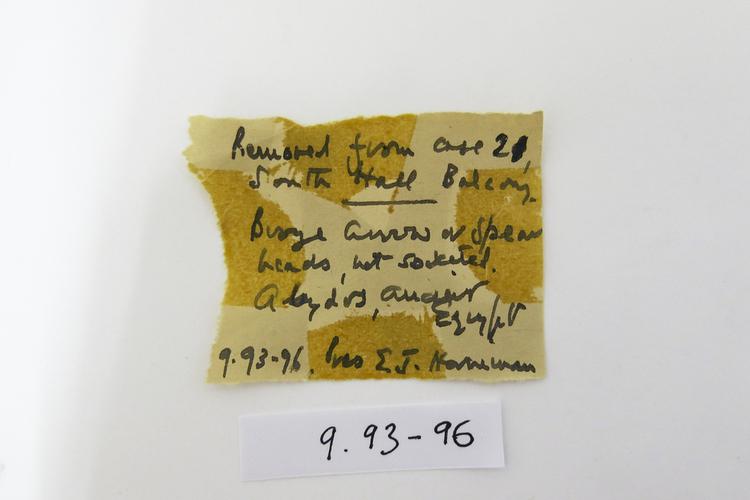 Removed from case 21,
South Hall Balcony.
Bronze arrow or spear
heads, not socketed.
Abydos, ancient
Egypt
9.93-96. Pres E.J. Horniman
9.93-96